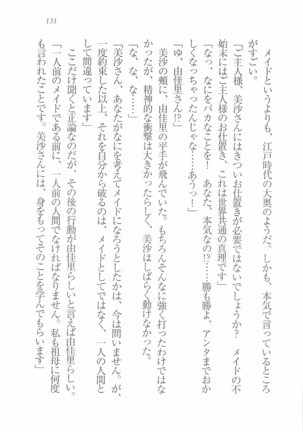 131
メイドというよりも、江戸時代の大奥のようだ。しかも、本気で言っているところ
がすごい。
「ご主人様、美沙さんにはきついお仕置きが必要ではないでしょうか? メイドの不
始末にはご主人様のお仕置き、これは世界共通の真理です」
「なっ、なにをバカなことを! あなた、本気なの!? ……勝も勝よ、アンタまでおか
しくなっちゃったんじゃな……あうっ!」
「ゆ、由佳里さん!?」
美沙の頬に、由佳里の平手が飛んでいた。もちろんそんなに強く打ったわけではな
かったが、精神的な衝撃は大きかったらしく、美沙はしばらく動けなかった。
「な、な、な……」
「美沙さん、あなたがなにを考えてメイドになろうとしたかは、今は問いません。が、
一度約束した以上、それを自分から破るのは、メイドとしてではなく、一人の人間と
して間違っています」
しっかりと聞くと正論なのだが、その後の行動が由佳里らしいと言えば由佳里らしい。
「一人前のメイドである前に、一人前の人間でなければなりません。私も祖母に何度
も言われてます。美沙さんには、身をもってそのことを学んでもらいます」